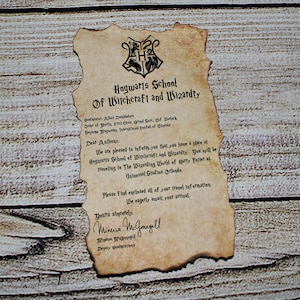 H
Hogwarts School
Of Witchcraft and Wizardry
Headmaster: Albus Dumbledore
Order of Merlin, First Class, Grand Sorc., Chf. Warlock,
Supreme Mugwump, International Confed. of Wizards
Dear Anthony,
We are pleased to inform you that you have a place at
Hogwarts School of Witchcraft and Wizardry. You will be
traveling to The Wizarding World of Harry Potter at
Universal Studios Orlando.
Please find enclosed all of your travel information.
We eagerly await your arrival.
Yours sincerely,
Minerva McGonagall
Minerva McGonagall
Deputy Headmistress